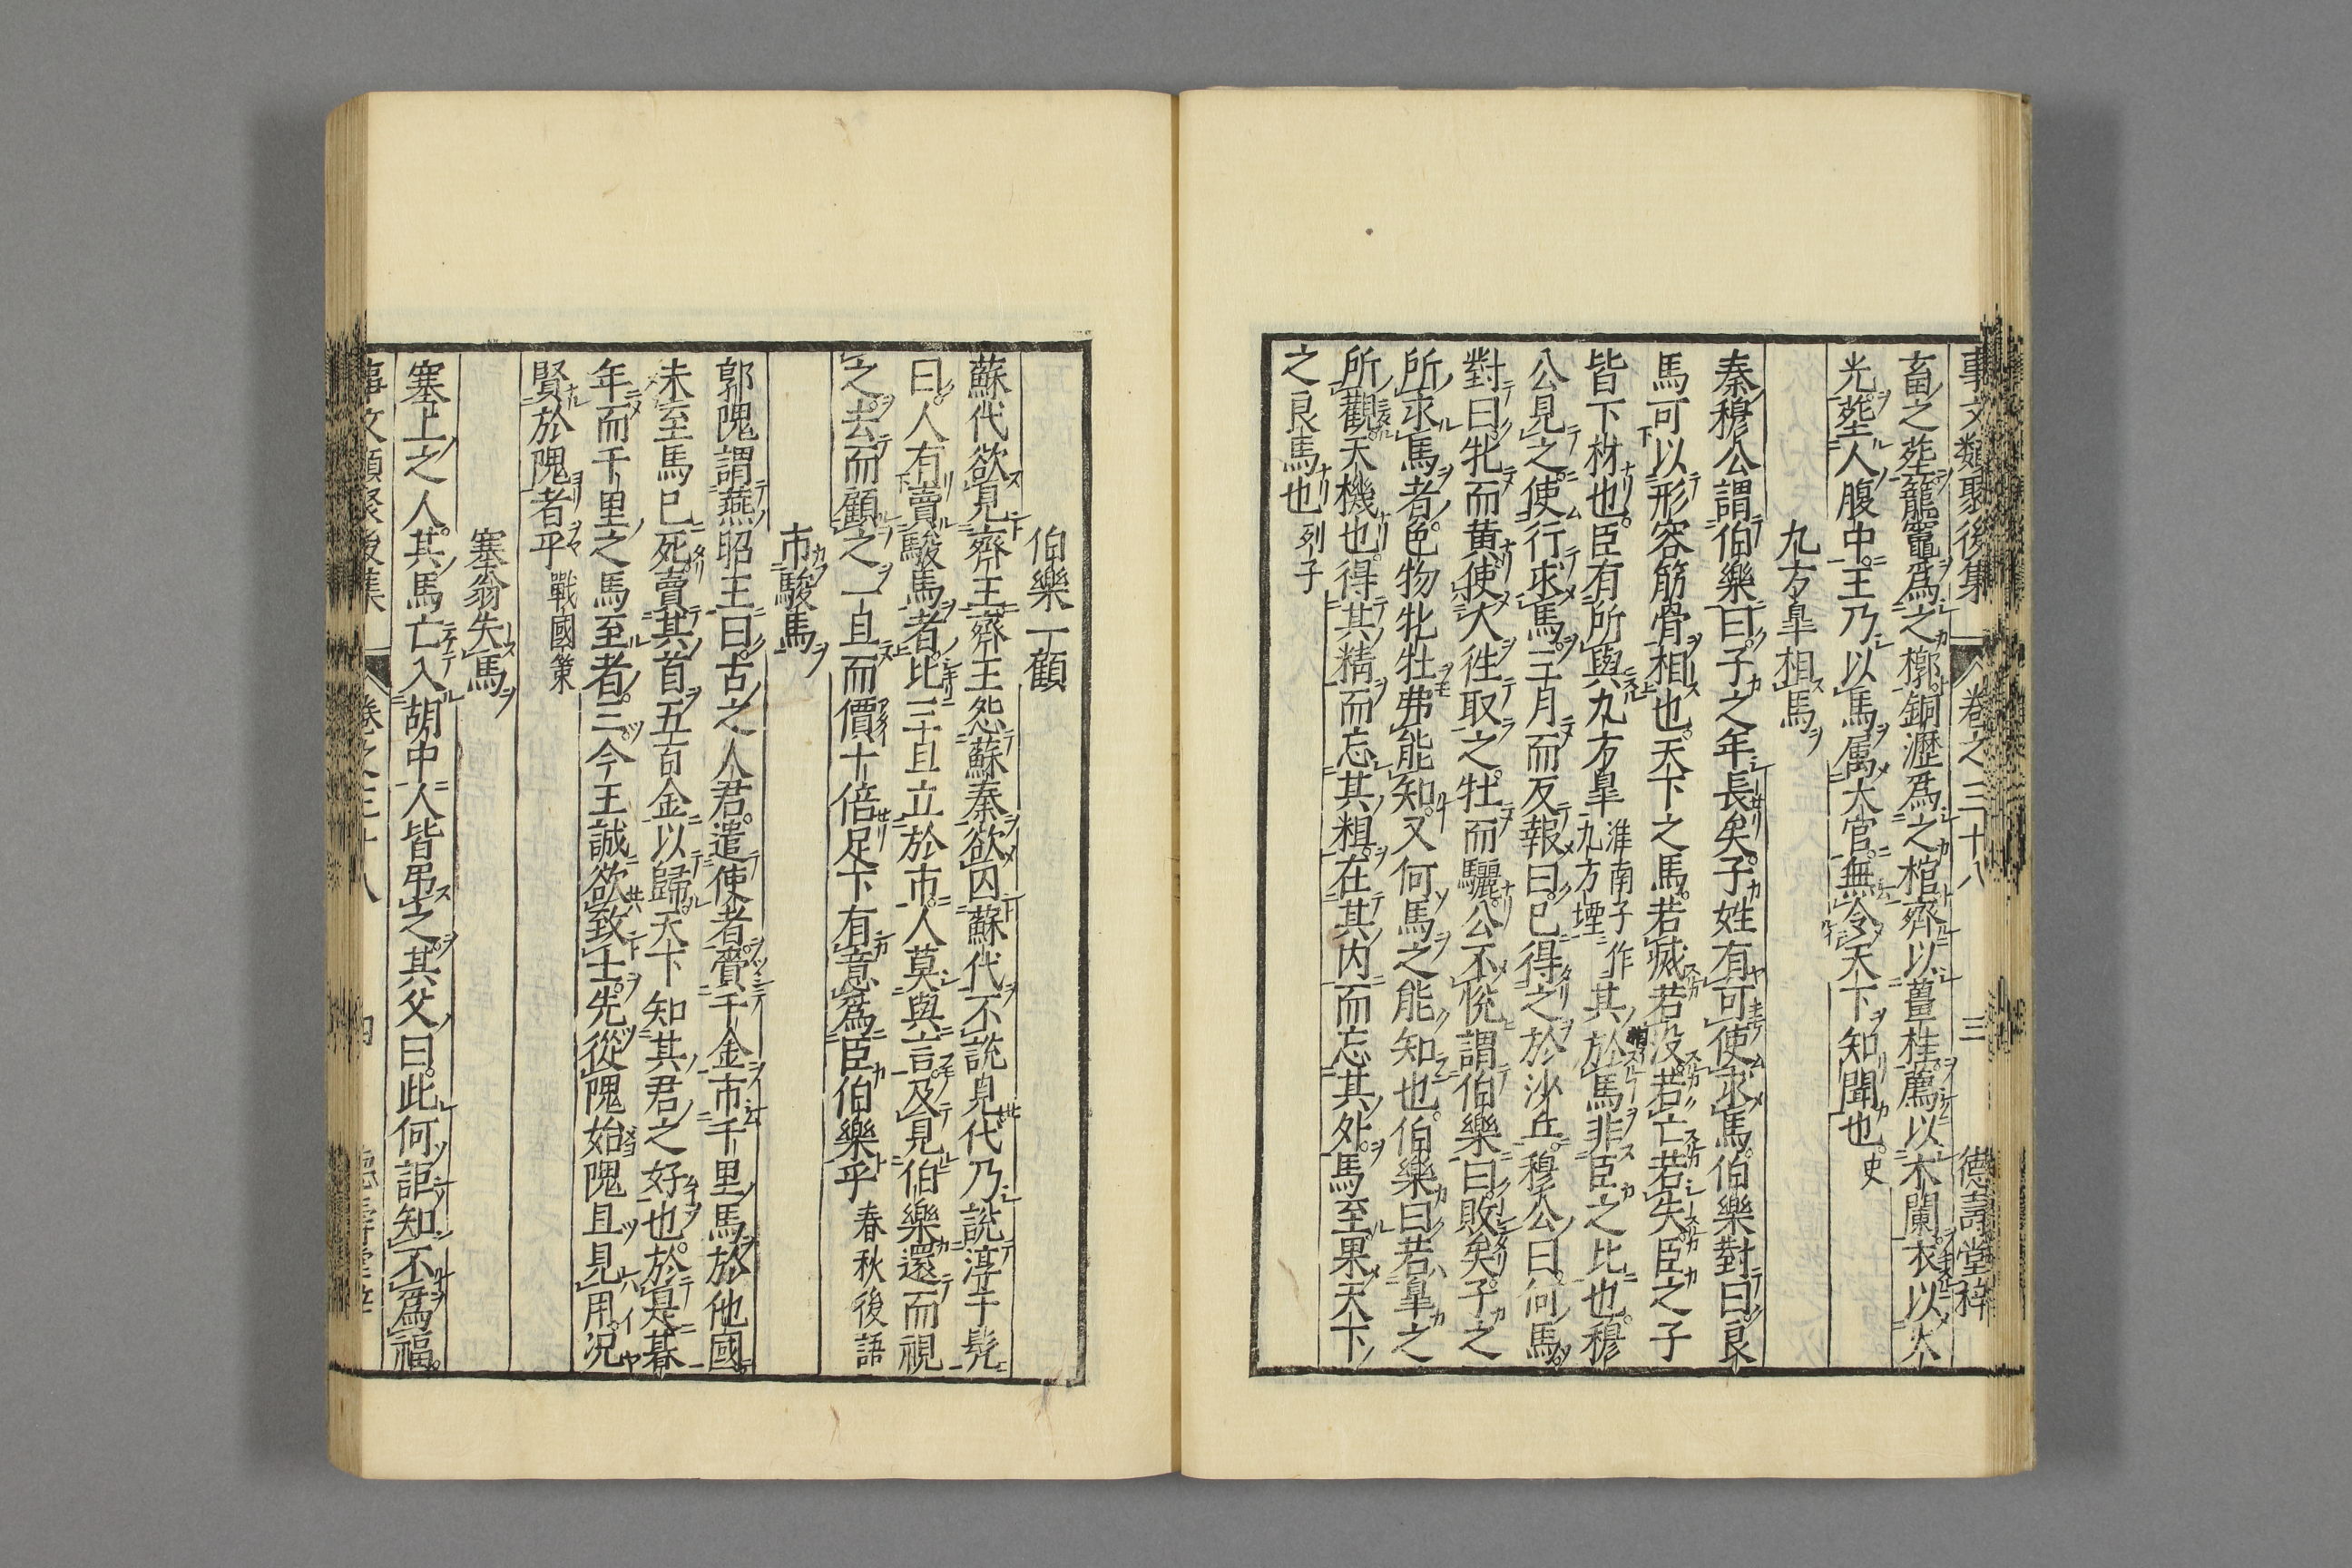 事文類聚後集 卷之三十八 三 德壽堂梓
畜之塟籠竈爲之槨銅瀝爲之棺齊以薑桂薦以木蘭衣以火
光塟人腹中王乃以馬属太官無令天下知聞也史
九方皐相馬
秦穆公謂伯樂曰子之年長矣子姓有可使求馬伯樂對曰良
馬可以形容筋骨相也天下之馬若滅若没若亡若失臣之子
皆下材也臣有所與九方皐淮南子作九方堙其於馬非臣之比也穆
公見之使行求馬三月而反報曰已得之於沙丘穆公曰何馬
對曰牝而黄使人徃取之牡而驪公不悅謂伯樂曰敗矣子之
所求馬者色物牝牡弗能知又何馬之能知也伯樂曰若皐之
所觀天機也得其精而忘其粗在其内而忘其外馬至果天下
之良馬也列子
伯樂一顧
蘇代欲見齊王齊王怨蘇秦欲囚蘇代不說見代乃說淳于髡
曰人有賣駿馬者比三旦立於市人莫與言及見伯樂還而視
之去而顧之一旦而價十倍足下有意爲臣伯樂乎春秋後語
市駿馬
郭隗謂燕昭王曰古之人君遣使者賫千金市千里馬於他國
未至馬已死賣其首五百金以歸天下知其君之好也於是朞
年而千里之馬至者三今王誠欲致士先從隗始隗且見用况
賢於隗者乎戰國策
塞翁失馬
塞上之人其馬亡入胡中人皆弔之其父曰此何詎知不爲福
事文類聚後集 卷之三十八